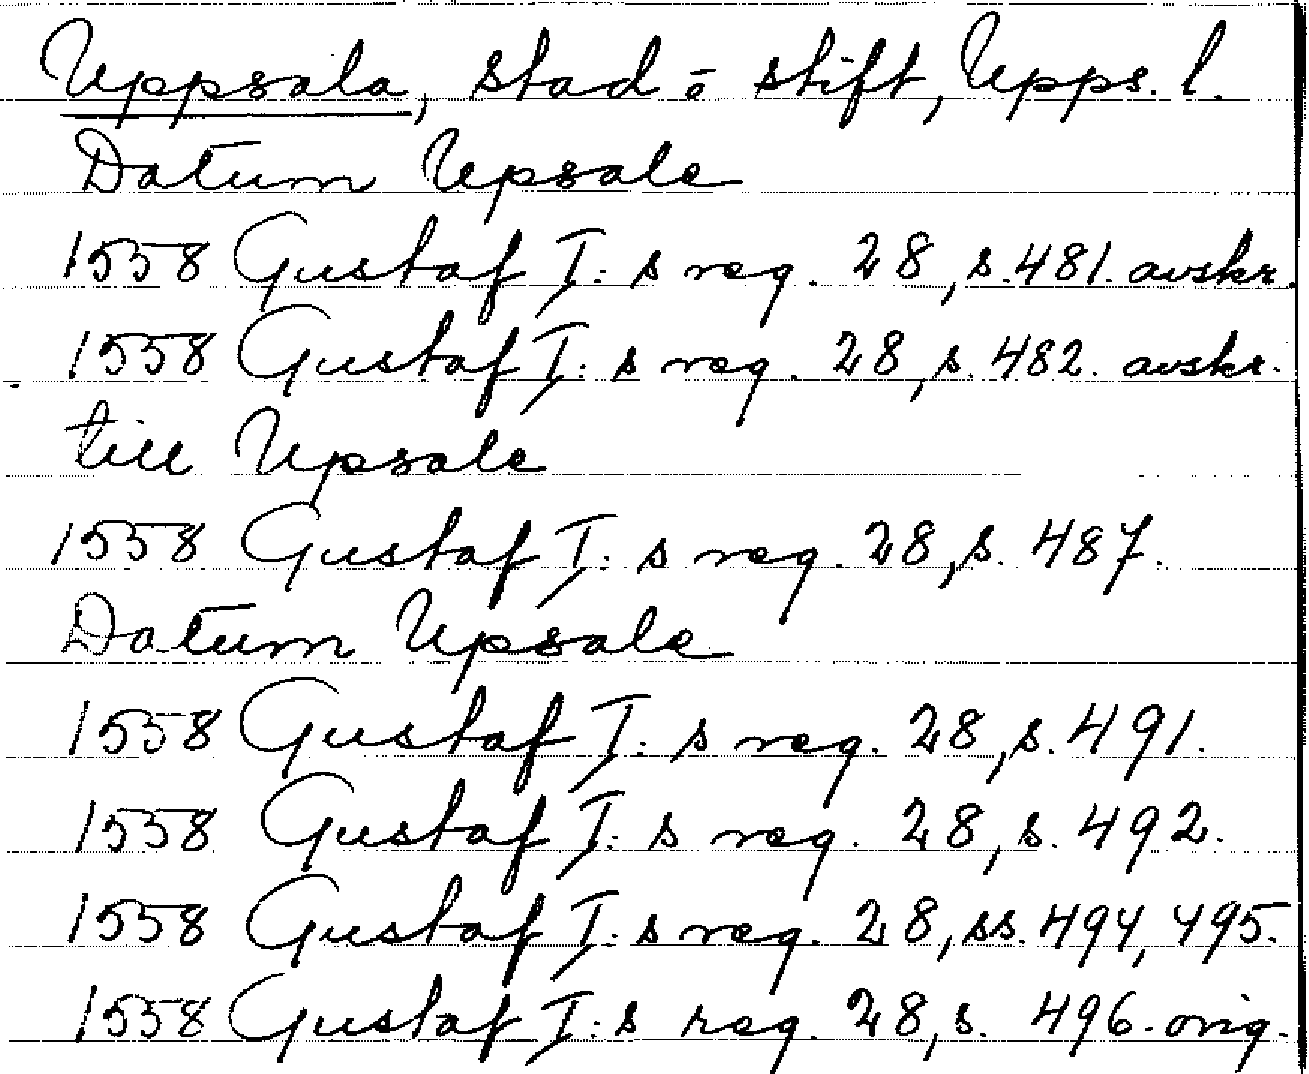 Uppsala, stad o stift, Upps. l.
Datum Upsale
1558 Gustaf I:s reg. 28, s. 481. avskr.
1558 Gustaf I:s reg. 28, s. 482. avskr.
till Upsale
1558 Gustaf I:s reg. 28, s. 487.
Datum Upsale
1558 Gustaf I:s reg. 28, s. 491.
1558 Gustaf I:s reg. 28, s. 492.
1558 Gustaf I:s reg. 28, ss. 494, 495.
1558 Gustaf I:s reg. 28, s. 496. orig.